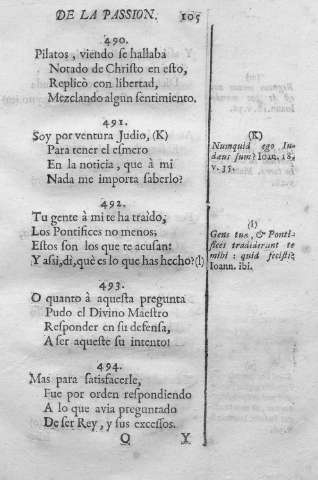 DE LA PASSION. 105
490.
Pilatos, viendo se hallaba
Notado de Christo en esto,
Replicò con libertad,
Mezclando algun sentimiento.
491.
Soy por ventura Judio, (K)
Para tener el esmero
En la noticia, que à mi
Nada me importa saberlo?
492.
Tu gente à mi te ha traìdo,
Los Pontifices no menos;
Estos son los que te acusan:
Y assi, di, què es lo que has hecho? (l)
493.
O quanto à aquesta pregunta
Pudo el Divino Maestro
Responder en su defensa,
A ser aqueste su intento!
494.
Mas para satisfacerle,
Fue por orden respondiendo
A lo que avia preguntado
De ser Rey, y sus excessos.
Q Y
(K)
Numquid ego Iu-
dæus sum? Ioan. 18.
v. 35.
(l)
Gens tua, & Ponti-
fices tradiderunt te
mihi: quid fecisti?
Ioann. ibi.